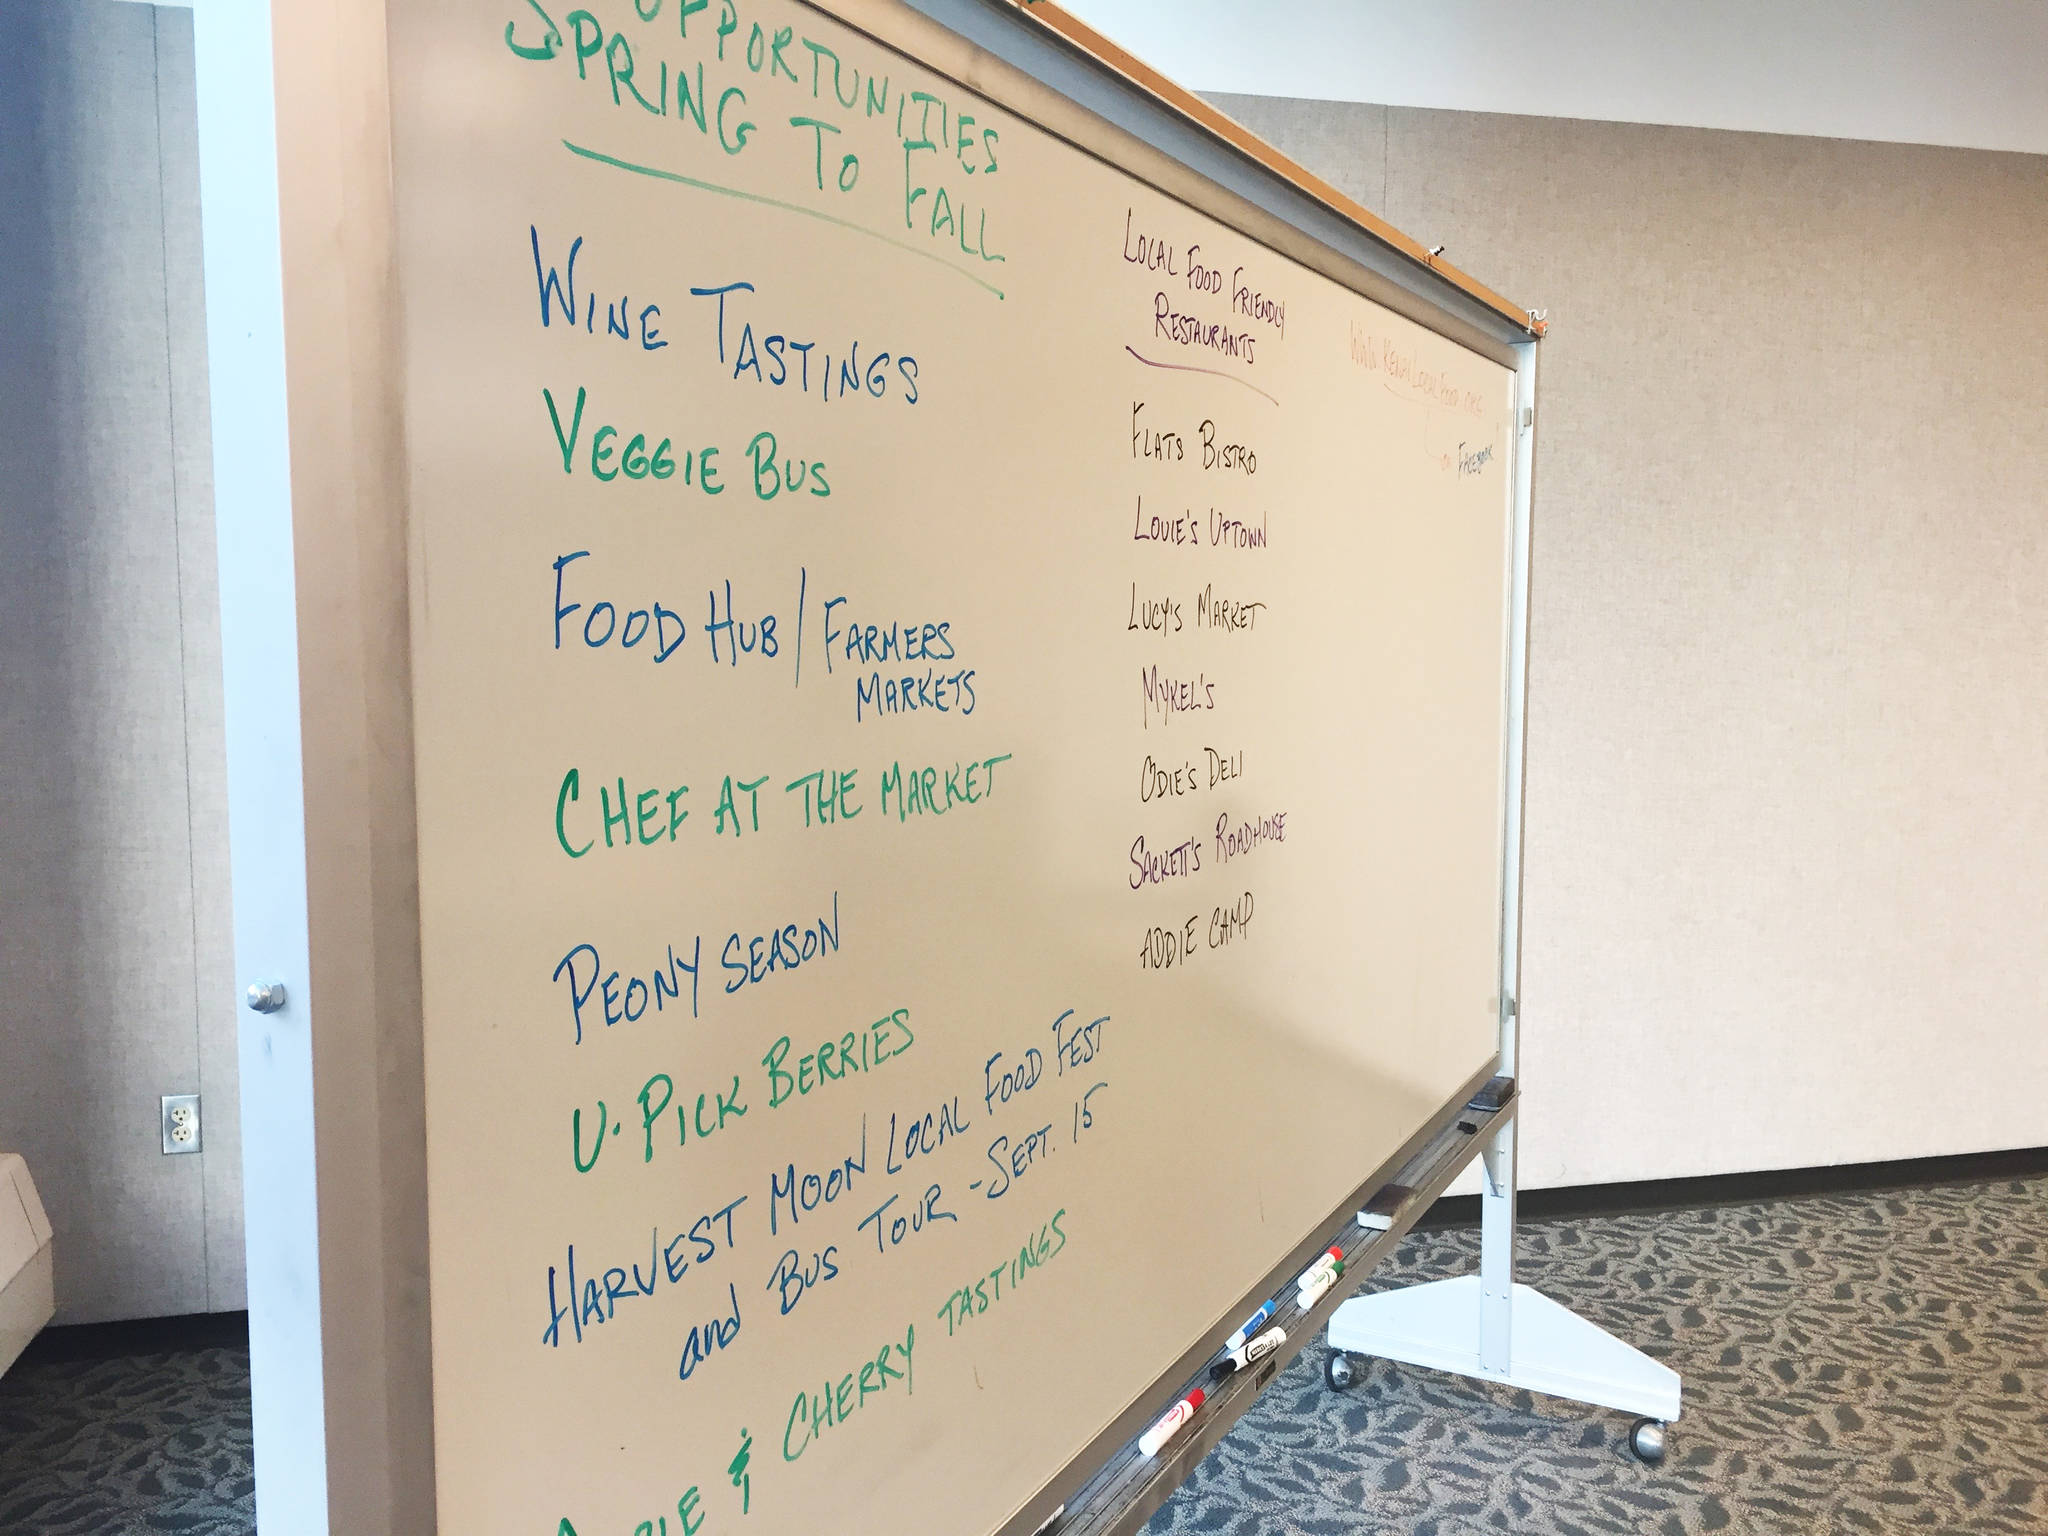 OPPORTUNITIES
SPRING TO FALL
WINE TASTINGS
VEGGIE BUS
FOOD HUB / FARMERS
MARKETS
CHEF AT THE MARKET
PEONY SEASON
U-PICK BERRIES
HARVEST MOON LOCAL FOOD FEST
and BUS TOUR - SEPT. 15
& CHERRY TASTINGS
LOCAL FOOD FRIENDLY
RESTAURANTS
FLATS BISTRO
LOUIE'S UPTOWN
LUCY'S MARKET
MYKEL'S
ODIE'S DELI
SACKETT'S ROADHOUSE
ADDIE CAMP
WWW.KENAILOCALFOOD.ORG
on FACEBOOK